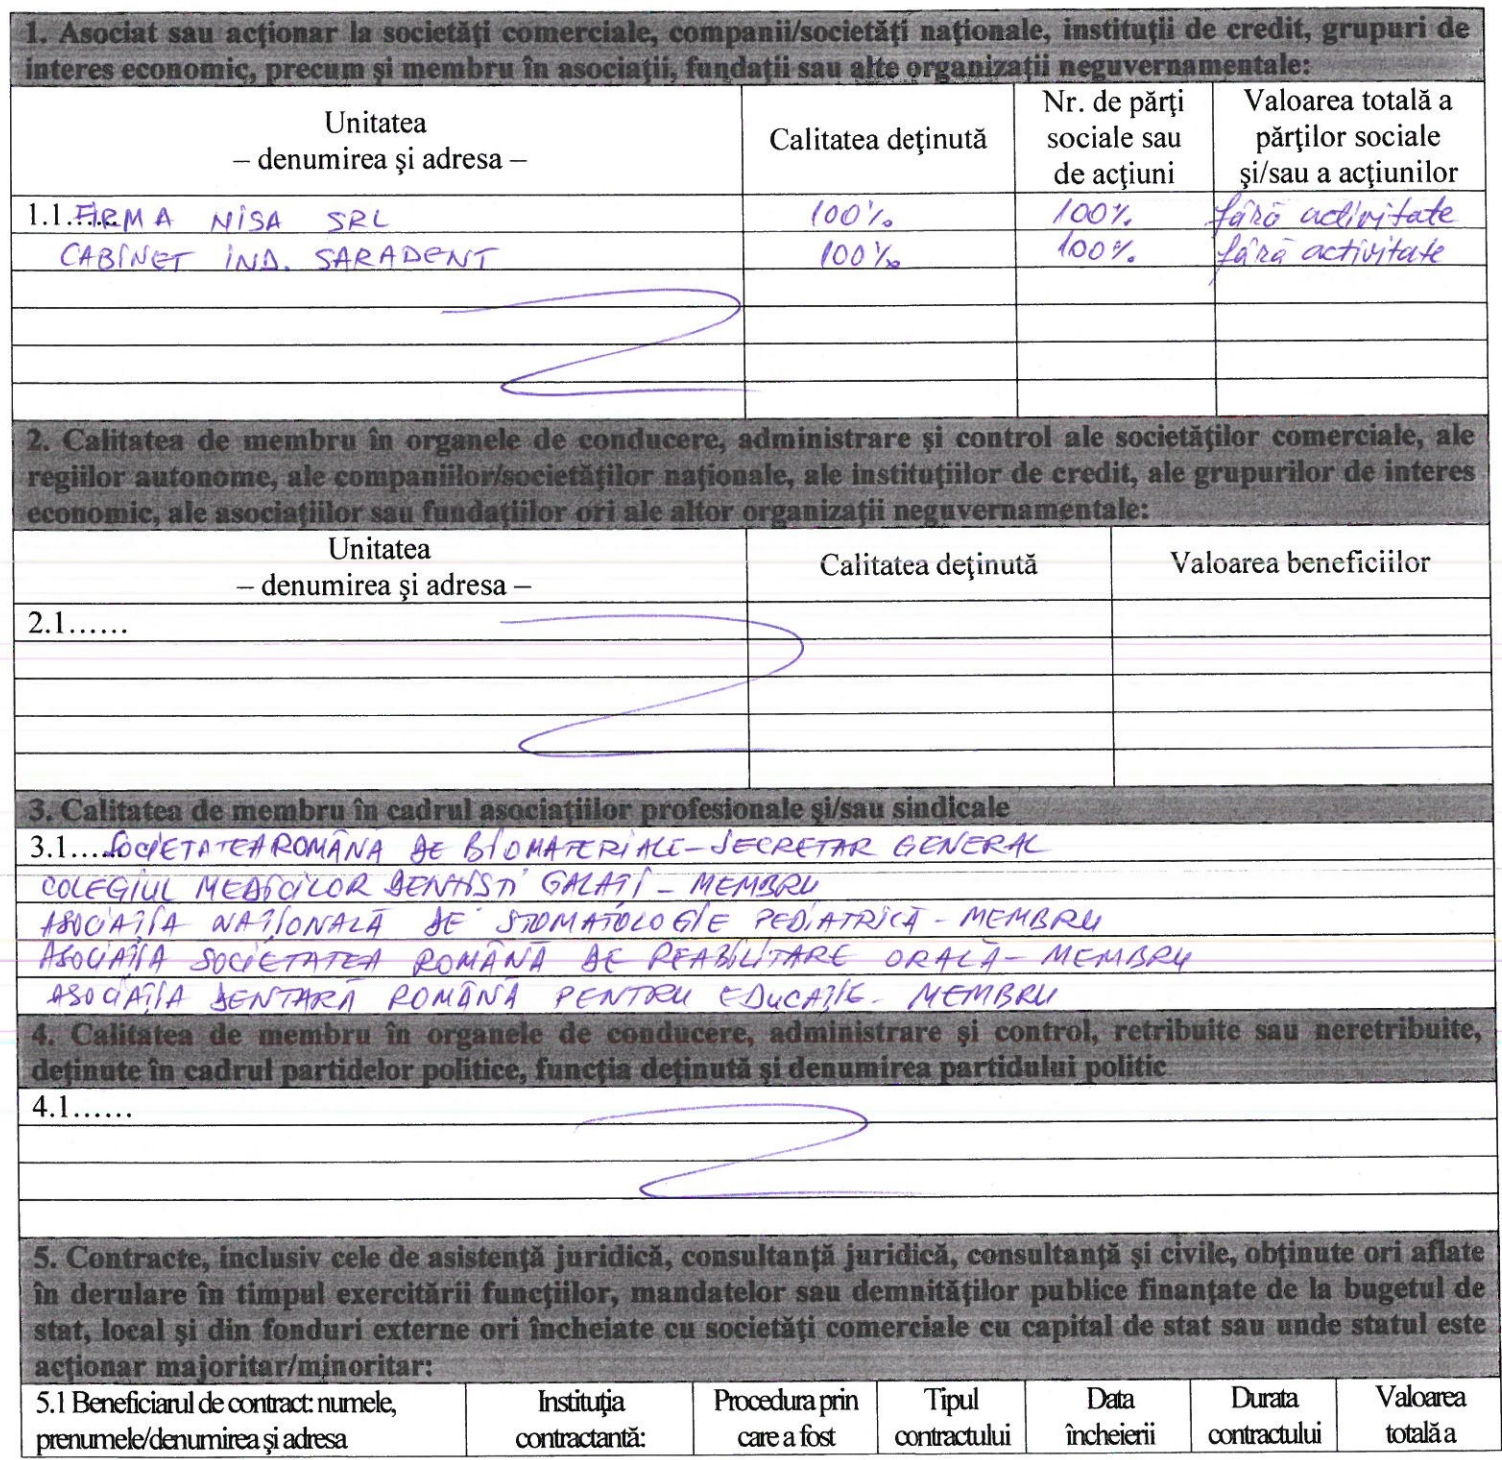 1. Asociat sau acţionar la societăţi comerciale, companii/societăţi naţionale, instituţii de credit, grupuri de
interes economic, precum şi membru în asociaţii, fundaţii sau alte organizaţii neguvernamentale:
Unitatea
– denumirea şi adresa –
Calitatea deţinută
Nr. de părţi
sociale sau
de acţiuni
Valoarea totală a
părţilor sociale
şi/sau a acţiunilor
1.1.FIRMA NISA SRL 100% 100% fără activitate
CABINET IND. SARADENT 100% 100% fără activitate
2. Calitatea de membru în organele de conducere, administrare şi control ale societăţilor comerciale, ale
regiilor autonome, ale companiilor/societăţilor naţionale, ale instituţiilor de credit, ale grupurilor de interes
economic, ale asociaţiilor sau fundaţiilor ori ale altor organizaţii neguvernamentale:
Unitatea
– denumirea şi adresa –
Calitatea deţinută
Valoarea beneficiilor
2.1......
3. Calitatea de membru în cadrul asociaţiilor profesionale şi/sau sindicale
3.1.....SOCIETATEA ROMÂNĂ DE BIOMATERIALE-SECRETAR GENERAL
COLEGIUL MEDICILOR DENTISTI GALAȚI - MEMBRU
ASOCIAȚIA NAȚIONALĂ DE STOMATOLOGIE PEDIATRICĂ - MEMBRU
ASOCIAȚIA SOCIETATEA ROMÂNĂ DE REABILITARE ORALĂ - MEMBRU
ASOCIAȚIA DENTARĂ ROMÂNĂ PENTRU EDUCAȚIE - MEMBRU
4. Calitatea de membru în organele de conducere, administrare şi control, retribuite sau neretribuite,
deţinute în cadrul partidelor politice, funcţia deţinută şi denumirea partidului politic
4.1......
5. Contracte, inclusiv cele de asistenţă juridică, consultanţă juridică, consultanţă şi civile, obţinute ori aflate
în derulare în timpul exercitării funcţiilor, mandatelor sau demnităţilor publice finanţate de la bugetul de
stat, local şi din fonduri externe ori încheiate cu societăţi comerciale cu capital de stat sau unde statul este
acţionar majoritar/minoritar:
5.1 Beneficiarul de contract: numele,
prenumele/denumirea şi adresa
Instituţia
contractantă:
Procedura prin
care a fost
Tipul
contractului
Data
încheierii
Durata
contractului
Valoarea
totală a